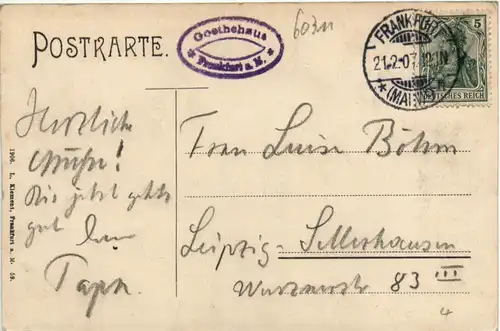 POSTKARTE.
Goethehaus
* Frankfurt a. M. *
60311
FRANKFURT
21.2.07.
* (MAIN)
5
DEUTSCHES REICH
Herzliche
Grüße!
Bis jetzt geht's
gut
Dein
Papa.
1906. L. Klement, Frankfurt a. M.
Frau Luise Böhm
Leipzig-Sellerhausen
Wurznerstr 83 III
4